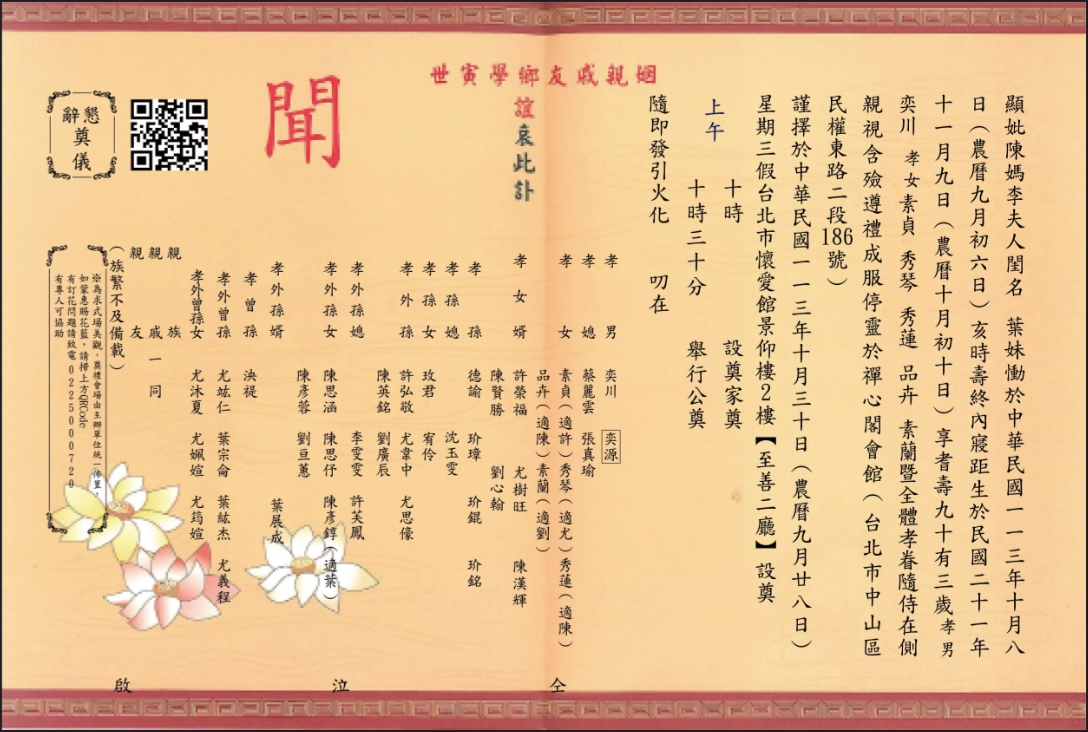 顯妣陳媽李夫人閨名　葉妹慟於中華民國一一三年十月八
日（農曆九月初六日）亥時壽終內寢距生於民國二十一年
十一月九日（農曆十月初十日）享耆壽九十有三歲孝男
奕川　孝女素貞　秀琴　秀蓮　品卉　素蘭暨全體孝眷隨侍在側
親視含殮遵禮成服停靈於禪心閣會館（台北市中山區
民權東路二段186號）
謹擇於中華民國一一三年十月三十日（農曆九月廿八日）
星期三假台北市懷愛館景仰樓2樓【至善二廳】設奠
十時　設奠家奠
上午
十時三十分　舉行公奠
隨即發引火化　叨在
姻親戚友鄉學寅世
誼哀此訃
聞
孝男　奕川　奕源
孝媳　蔡麗雲　張真瑜
孝女　素貞（適許）秀琴（適尤）秀蓮（適陳）
品卉（適陳）素蘭（適劉）
孝女婿　許榮福　尤樹旺　陳漢輝
陳賢勝　劉心翰
孝孫　德諭　玠璋　玠錕　玠銘
孝孫媳　沈玉雯
孝孫女　玫君　宥伶
孝外孫　許弘敬　尤韋中　尤思㒟
陳英銘　劉廣辰
孝外孫媳　李雯雯　許芙鳳
孝外孫女　陳思涵　陳思伃　陳彥錞（適葉）
陳彥蓉　劉亘蕙
孝外孫婿　葉展成
孝曾孫　泱禔
孝外曾孫　尤竑仁　葉宗侖　葉紘杰　尤義程
孝外曾孫女　尤沐夏　尤姵媗　尤筠媗
親族
親戚一同
親友
（族繁不及備載）
仝
泣
啟
懇辭
奠
儀
※為求式場美觀，奠禮會場由主辦單位統一佈置，
如蒙惠賜花籃，請掃上方QRCode
有訂花問題請致電0225000720
有專人可協助